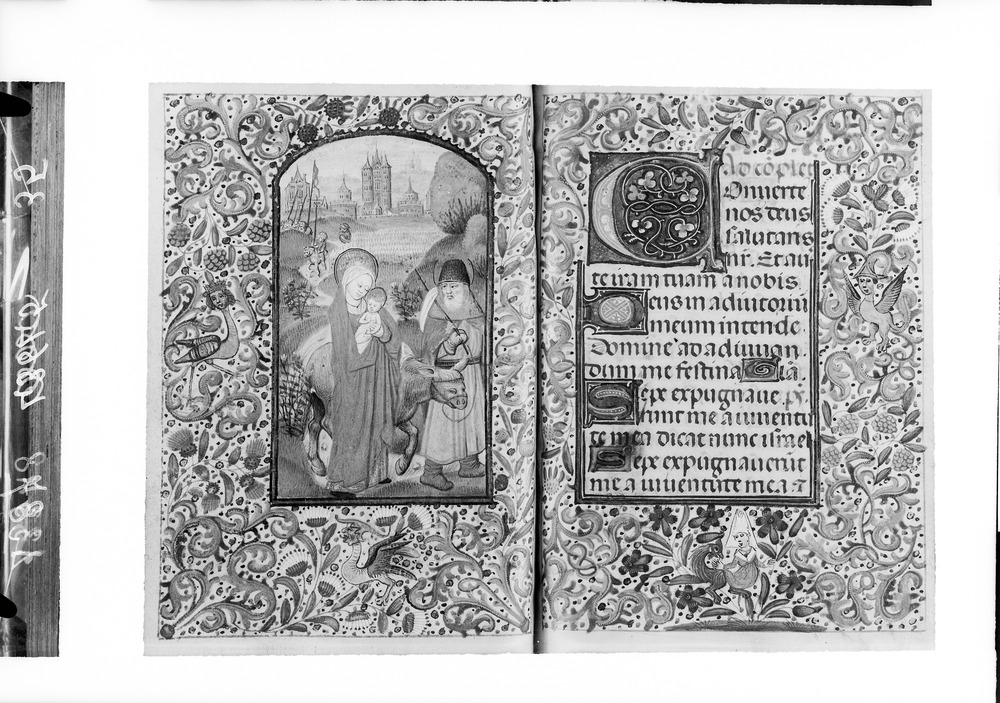 Ad cõplet
Conuerte
nos deus
salutaris
nr̃. Et au
te iram tuam a nobis
Deus in adiutoriũ
meum intende.
Domine ad adiuuan.
dum me festina Glã
Sepe expugnaue
runt me a iuuentu
te mea dicat nunc israel
Sepe expugnauerũt
me a iuuentute mea